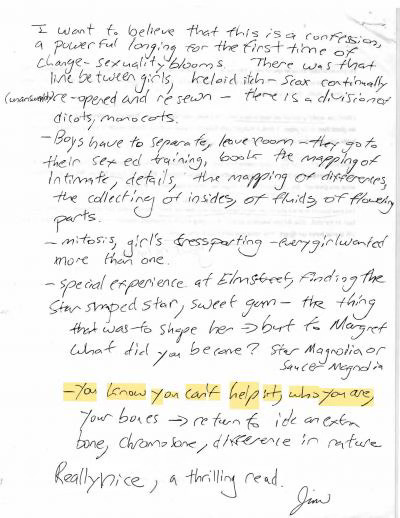 I want to believe that this is a confession,
a powerful longing for the first time of
change - sexuality blooms. There was that
line between girls, keloid itch - scar continually
re-opened and resewn - there is a division of
dicots, monocots.
- Boys have to separate, leave room - they go to
their sex ed training, books the mapping of
intimate, details, the mapping of differences,
the collecting of insides, of fluids, of flowering
parts.
- mitosis, girl's - every girl wanted
more than one.
- special experience at Elmstreet, finding the
star shaped star, sweet gum - the thing
that was to shape her → but to Margret
what did you become? Star Magnolia or
Saucer Magnolia
- You know you can't help it, who you are,
your bones → return to an extra
bone, chromosone, difference in nature
Really nice, a thrilling read.
Jim